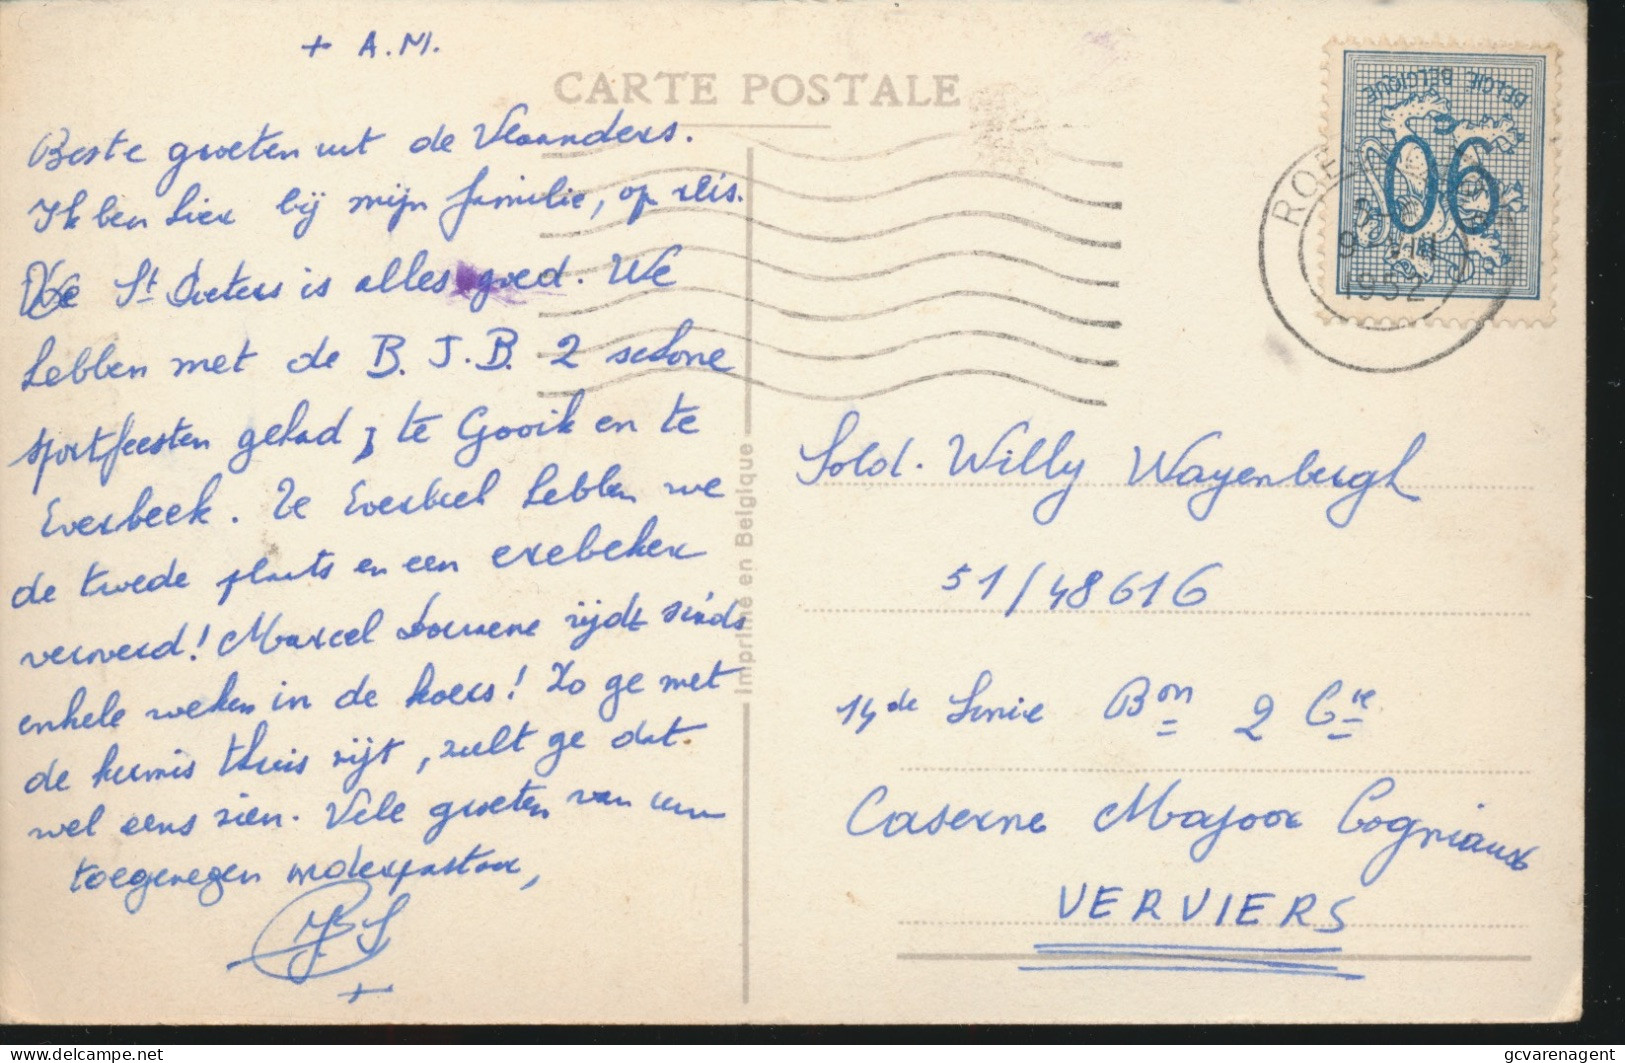 + A.M.
CARTE POSTALE
Beste groeten uit de Vlaanders.
Ik ben hier bij mijn familie, op reis.
Te St Pieters is alles goed. We
hebben met de B.J.B. 2 schone
sportfeesten gehad, te Gooik en te
Everbeek. Te Everbeek hebben we
de twede plaats en een erebeker
verwerd! Marcel rijdt sinds
enkele weken in de koers! Zo ge met
de kermis thuis zijt, zult ge dat
wel eens zien. Vele groeten van uw
toegenegen onderpastoor,
+
Imprimé en Belgique
BELGIE BELGIQUE
90
ROE
9 VIII
1952
Sold. Willy Wayenbergh
51/48616
14de Linie Bon 2 Cie
Caserne Majoor Cogniaux
VERVIERS
delcampe.net
gcvarenagent